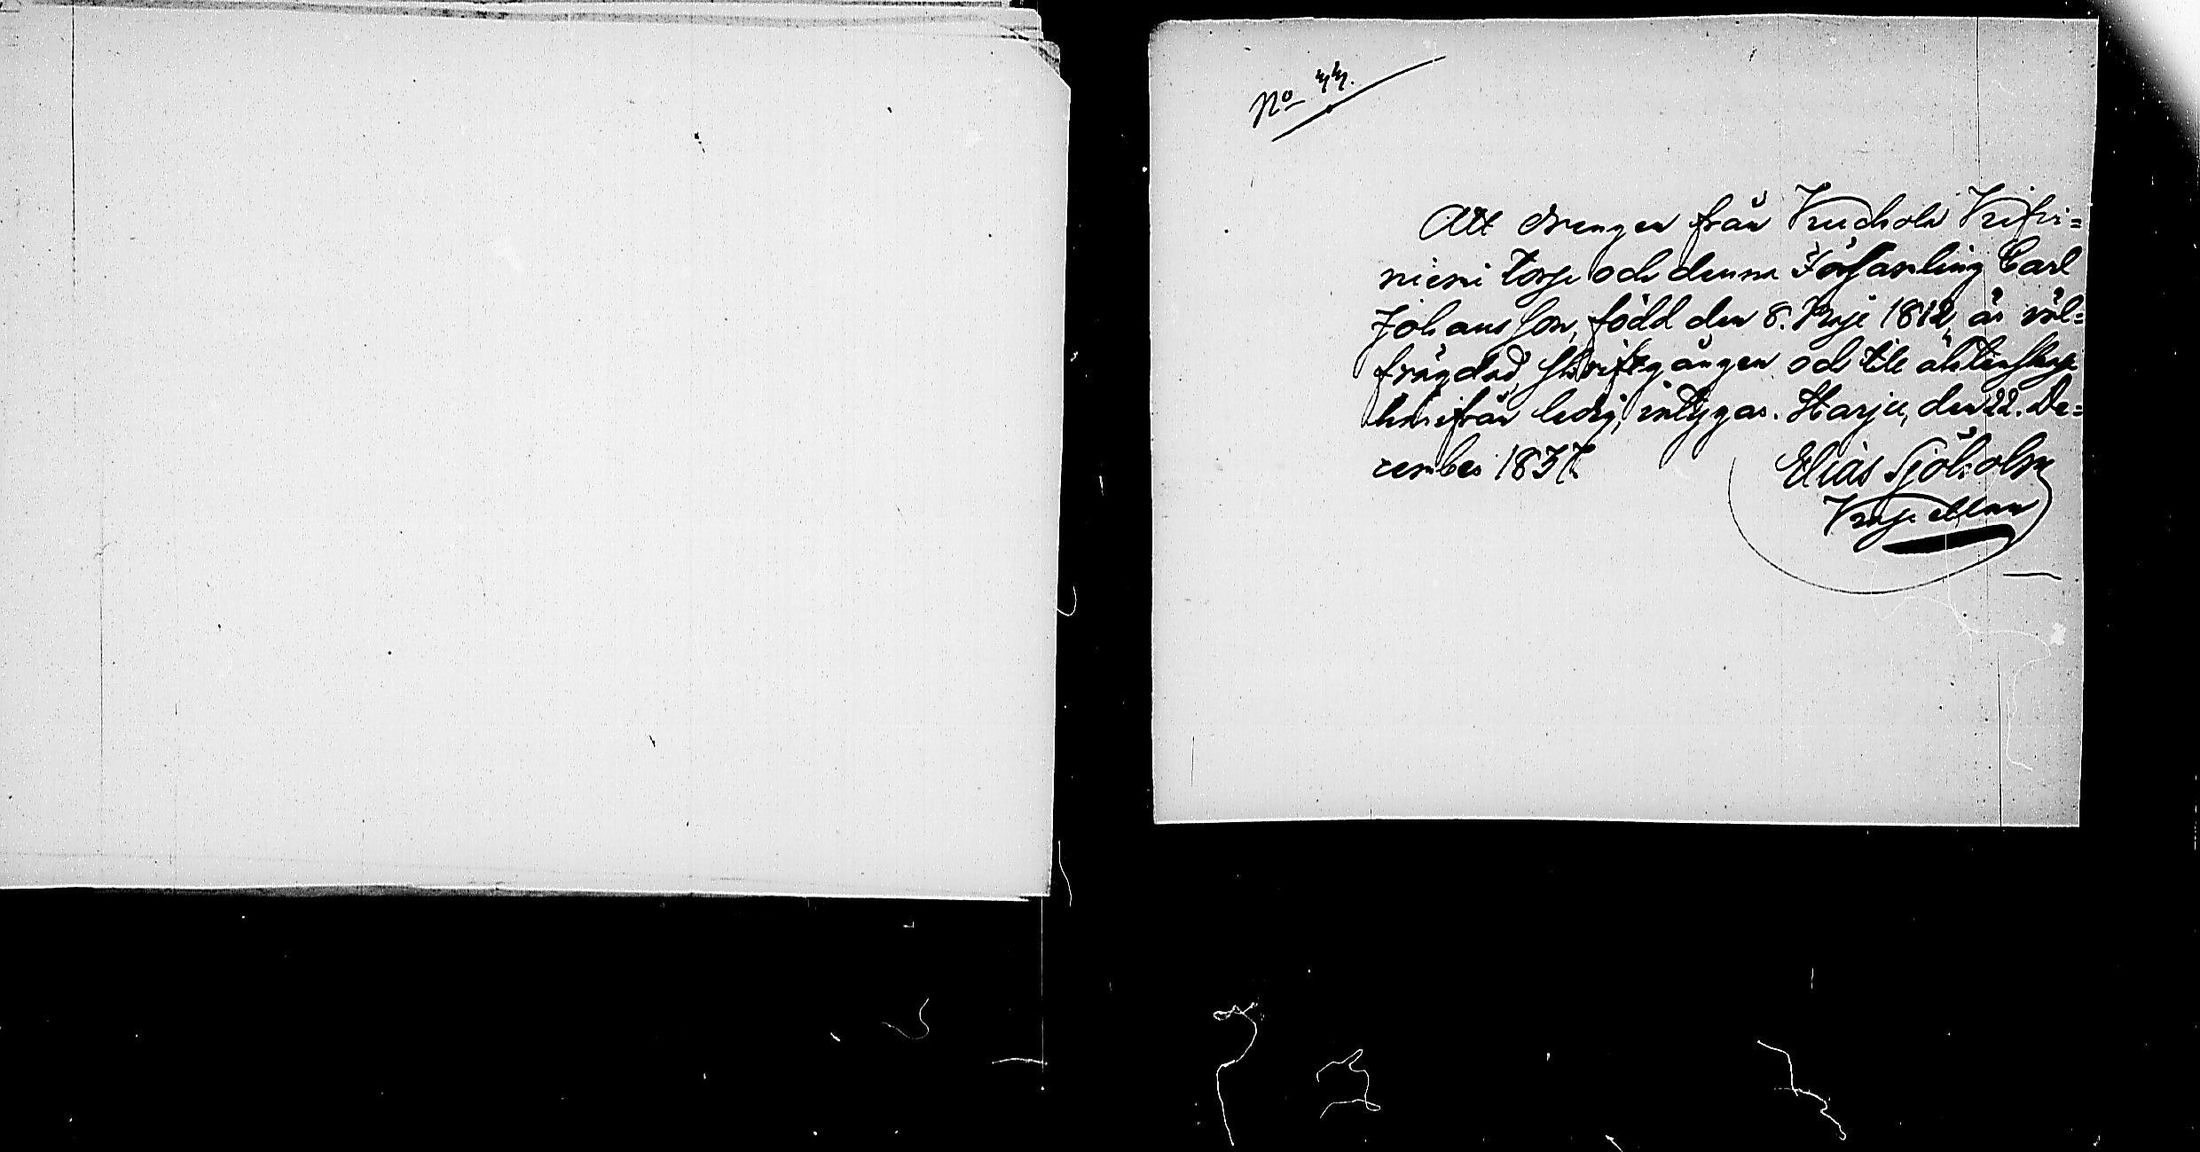 No 44.
Att drengen från
torp och denna Församling Carl
Johansson, född den 8. Maji 1812, är väl=
frägdad, skriftgången och till äktenskap
härifrån ledig, intygar. Harju, den 22. De=
cember 1837.
Elias Sjöholm
Kapellan